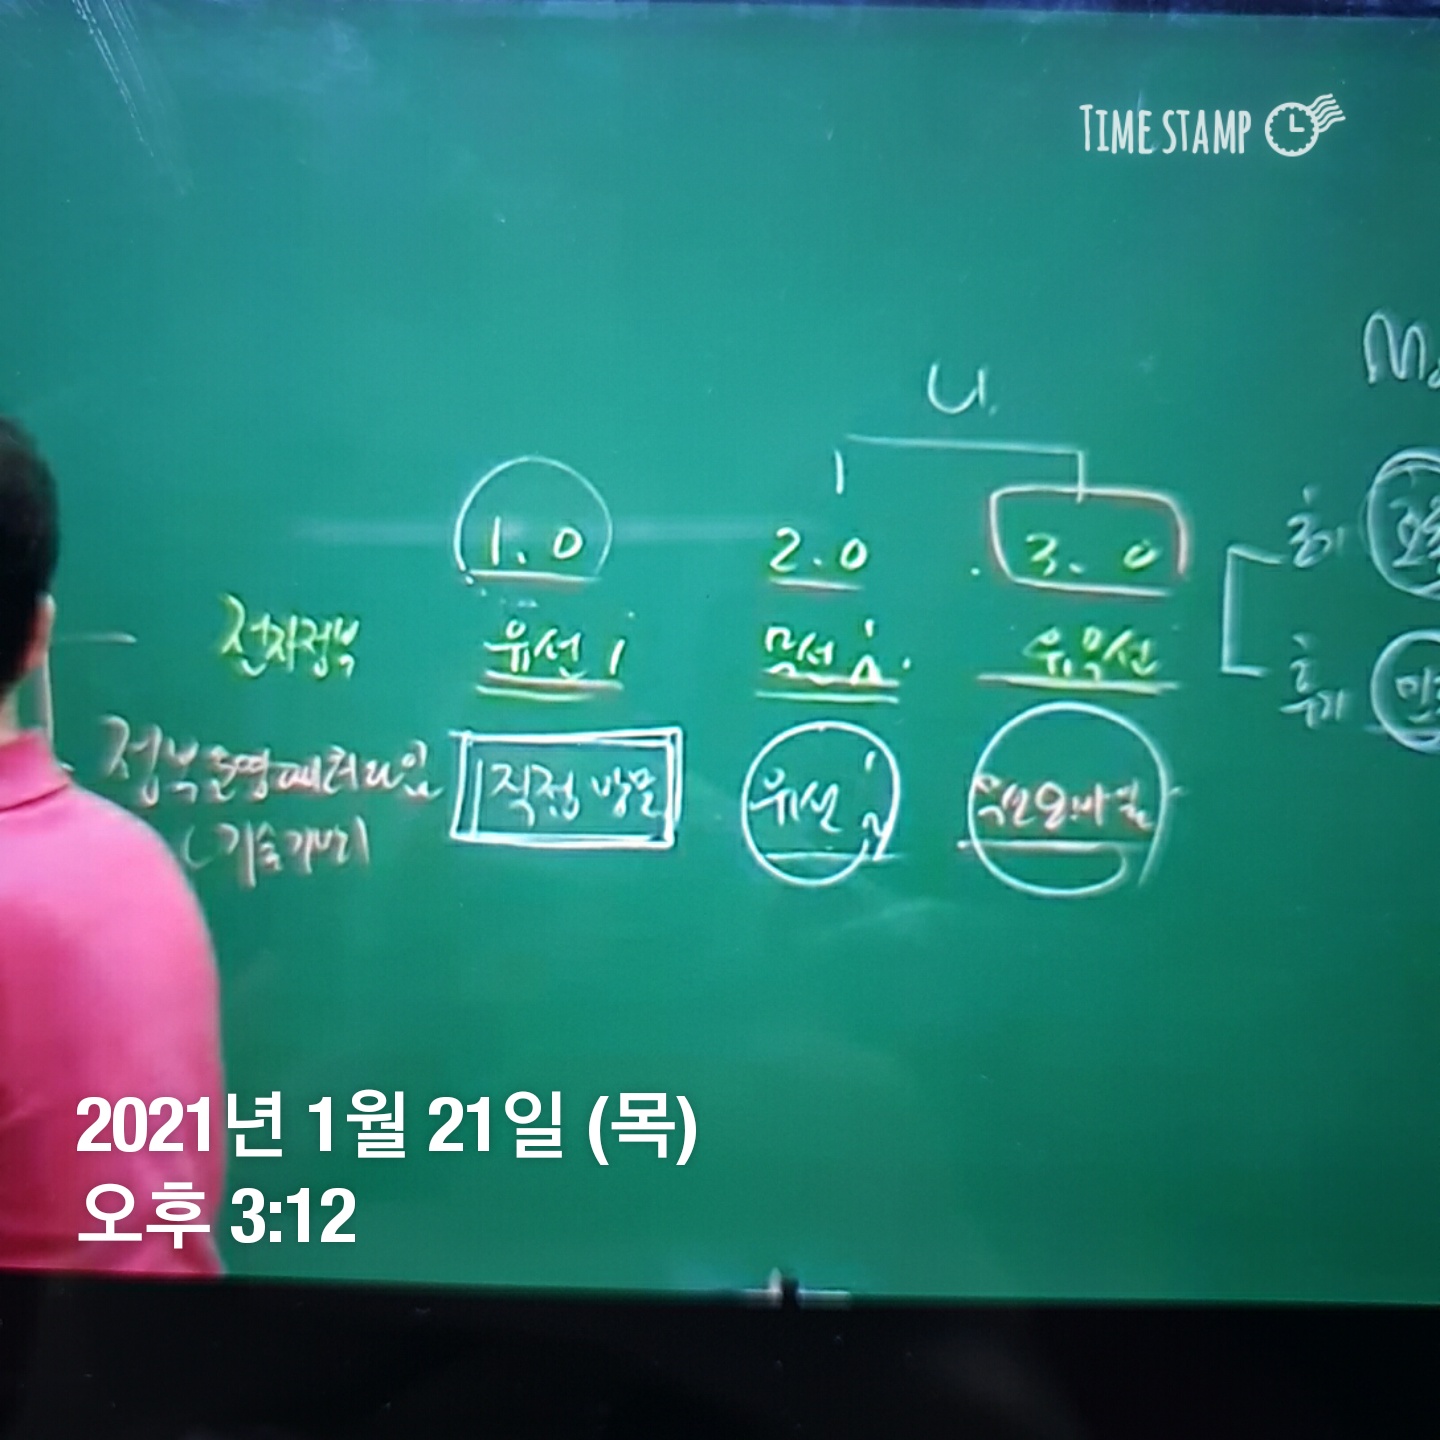 TIME STAMP
U.
1.0 2.0 3.0
전자정부 유선 무선 유무선
정부운영패러다임 직접 방문 유선 무선모바일
(기술개발)
초기
후기
2021년 1월 21일 (목)
오후 3:12